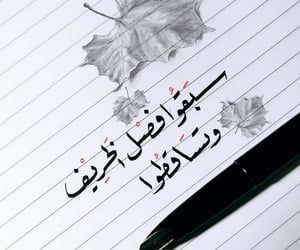 سَبَقُوا فَصْل الخَرِيفْ
وتساقطُوا